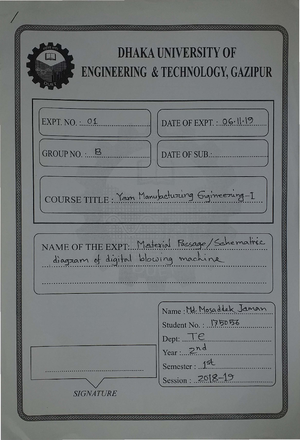 DHAKA UNIVERSITY OF
ENGINEERING & TECHNOLOGY, GAZIPUR
EXPT. NO. : 01
DATE OF EXPT. : 06-11-19
GROUP NO. : B
DATE OF SUB. :
COURSE TITLE : Yarn Manufacturing Engineering-I
NAME OF THE EXPT: Material Passage/Schematric
diagram of digital blowing machine
Name : Md. Mosaddek Jaman
Student No. : 175056
Dept: TE
Year : 2nd
Semester : 1st
Session : 2018-19
SIGNATURE